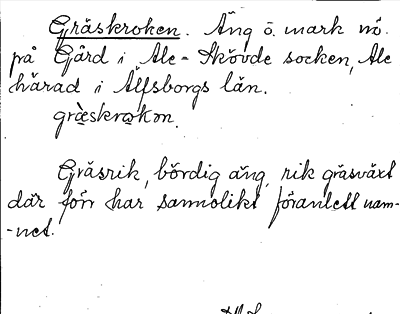 Gräskroken. Äng o. mark nö.
på Gård i Ale-Skövde socken, Ale
härad i Älfsborgs län.
græ̀skrɷkɷn.
Gräsrik, bördig äng, rik gräsväxt
där förr har sannolikt föranlett nam-
-net.